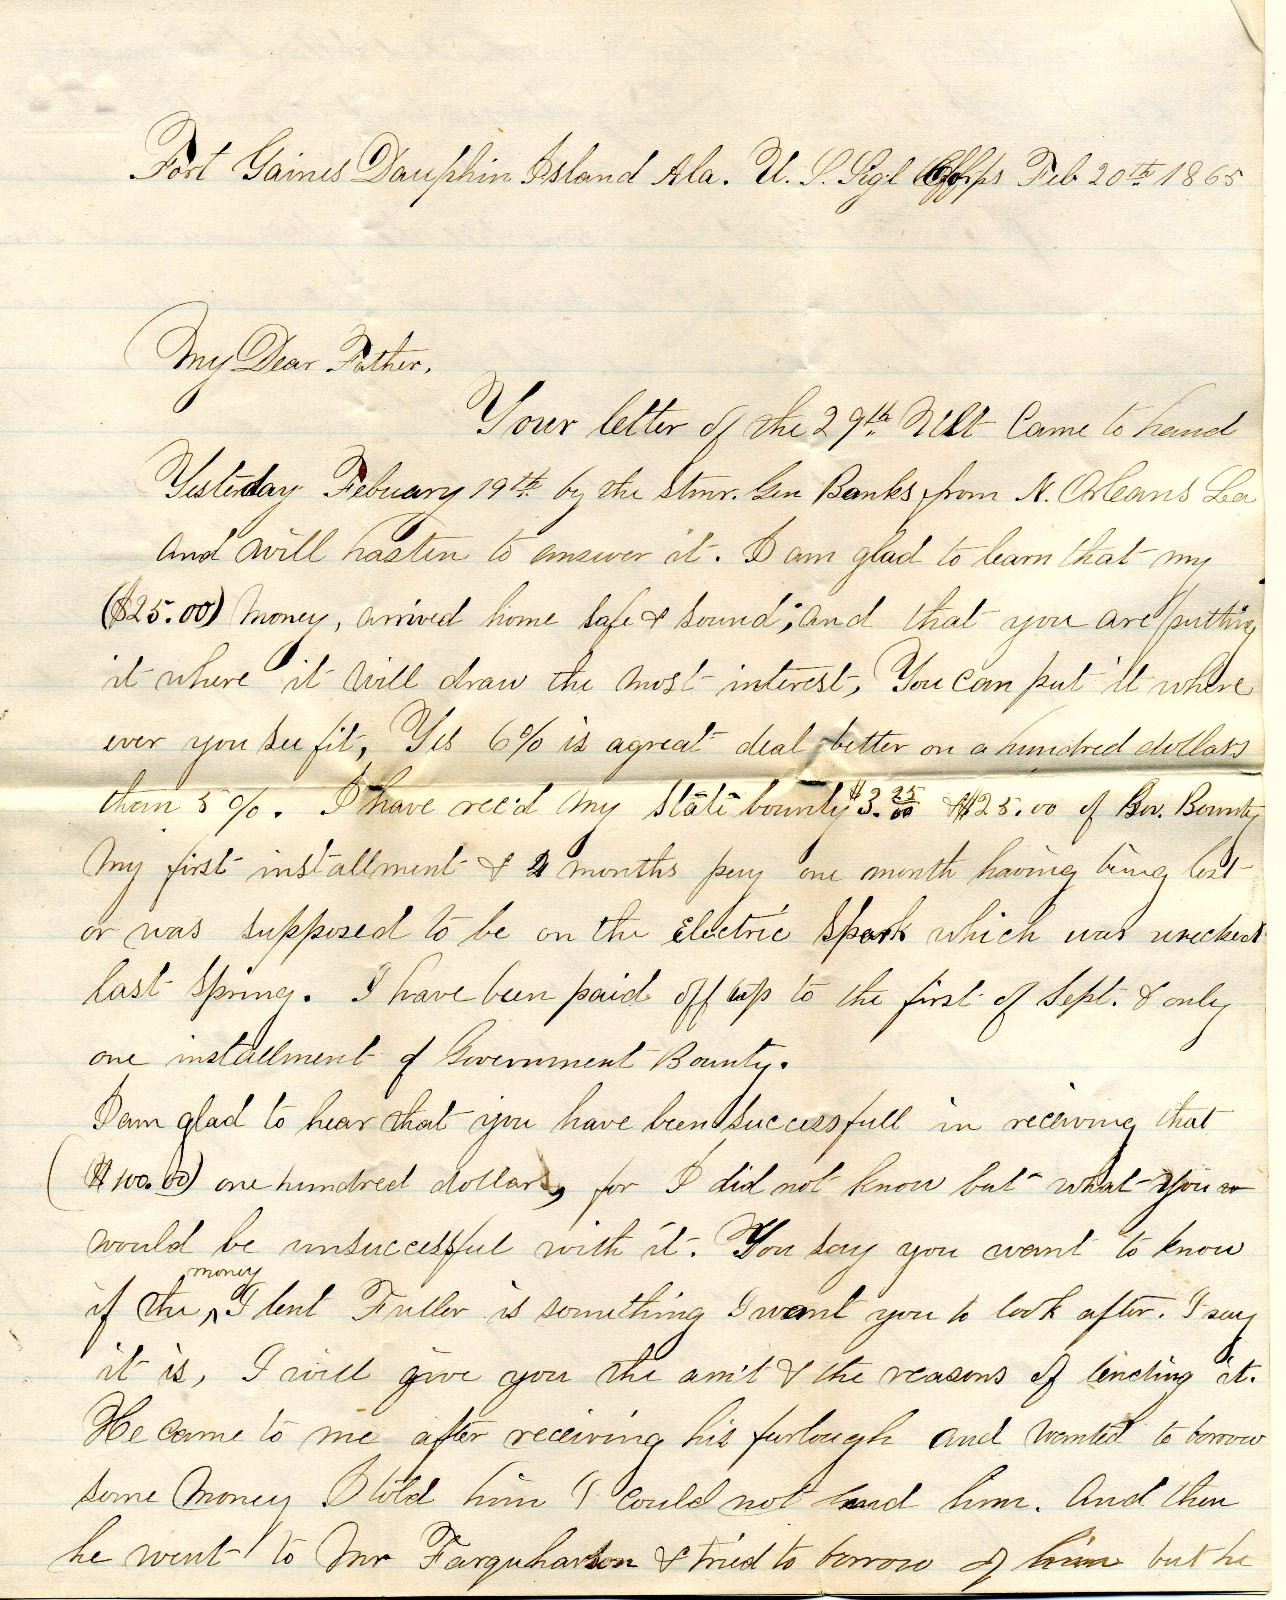 Fort Gaines Dauphin Island Ala. U. S. Sigl Corps Feb 20th 1865
My Dear Father,
Your letter of the 29th Ult Came to hand
Yesterday Febuary 19th by the Stmr. Gen Banks from N. Orleans La
and will hasten to answer it. I am glad to learn that my
($25.00) money, arrived home safe & sound; and that you are putting
it where it will draw the most interest, You can put it where
ever you see fit, Yes 6% is a great deal better on a hundred dollars
than 5%. I have rec'd my state bounty $3.25/00 & $25.00 of Gov. Bounty
My first installment & 2 months pay one month having being lost
or was supposed to be on the Electric Spark which was wrecked
last Spring. I have been paid off up to the first of Sept. & only
one installment of Government Bounty.
I am glad to hear that you have been successfull in receiving that
($100.00) one hundred dollars, for I did not know but what you
would be unsuccessful with it. You say you want to know
if the ^money I lent Fuller is something I want you to look after. I say
it is, I will give you the am't & the reasons of lending it.
He came to me after receiving his furlough and wanted to borrow
some money I told him I could not lend him. And then
he went to Mr Farquharson & tried to borrow of him but he